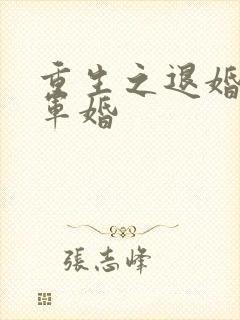 重生之退婚
軍婚
張志峰